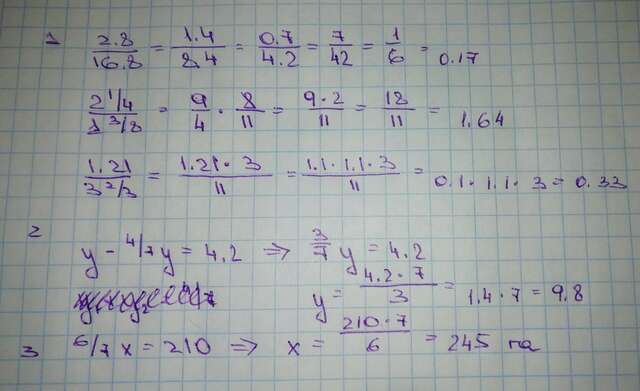 1 2.8/16.8 = 1.4/8.4 = 0.7/4.2 = 7/42 = 1/6 = 0.17
2 1/4 / 1 3/8 = 9/4 · 8/11 = 9·2/11 = 18/11 = 1.64
1.21 / 3 2/3 = 1.21·3/11 = 1.1·1.1·3/11 = 0.1·1.1·3 = 0.33
2 y - 4/7 y = 4.2 => 3/7 y = 4.2
y = 4.2·7/3 = 1.4·7 = 9.8
3 6/7 x = 210 => x = 210·7/6 = 245 га